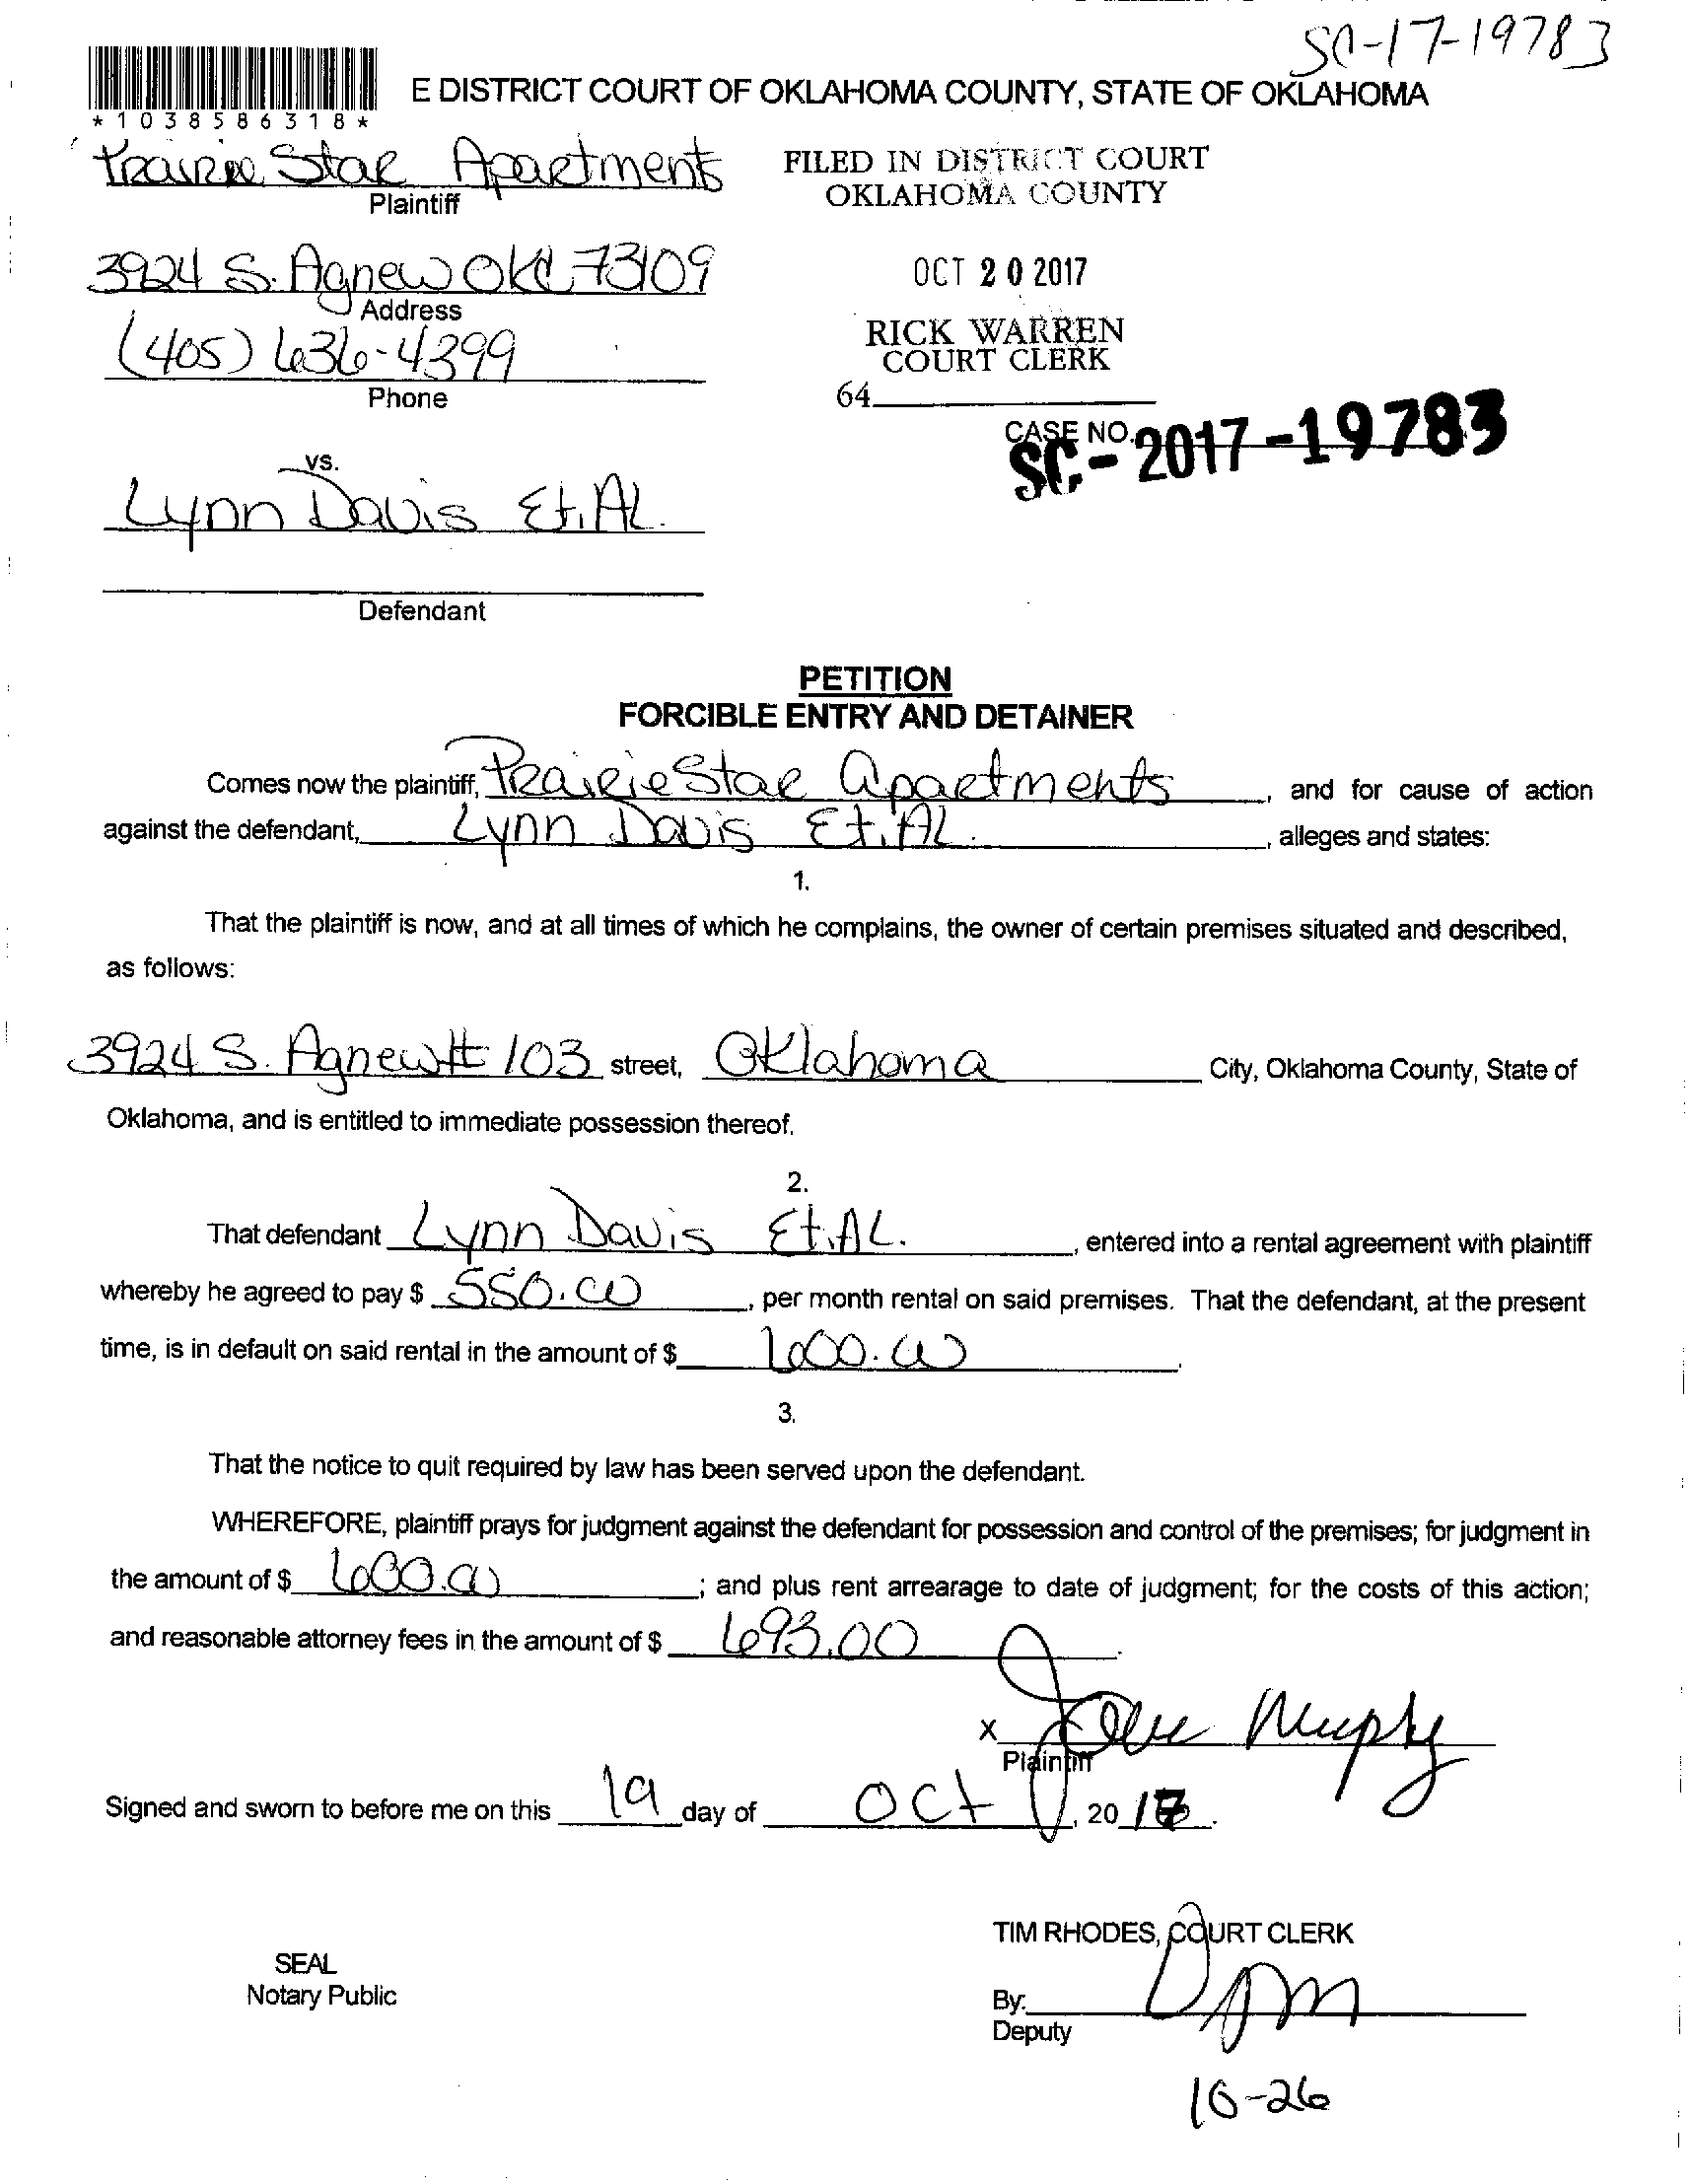 SC-17-19783
E DISTRICT COURT OF OKLAHOMA COUNTY, STATE OF OKLAHOMA
*1038586318*
Prairie Star Apartments
Plaintiff
FILED IN DISTRICT COURT
OKLAHOMA COUNTY
3924 S. Agnew OKC 73109
Address
OCT 20 2017
(405) 636-4399
Phone
RICK WARREN
COURT CLERK
64
CASE NO.
SC-2017-19783
vs.
Lynn Davis Et.AL.
Defendant
PETITION
FORCIBLE ENTRY AND DETAINER
Comes now the plaintiff, Prairie Star apartments, and for cause of action
against the defendant, Lynn Davis Et.AL., alleges and states:
1.
That the plaintiff is now, and at all times of which he complains, the owner of certain premises situated and described,
as follows:
3924 S. Agnew # 103 street, Oklahoma City, Oklahoma County, State of
Oklahoma, and is entitled to immediate possession thereof.
2.
That defendant Lynn Davis Et.AL., entered into a rental agreement with plaintiff
whereby he agreed to pay $ 550.00, per month rental on said premises. That the defendant, at the present
time, is in default on said rental in the amount of $ 600.00.
3.
That the notice to quit required by law has been served upon the defendant.
WHEREFORE, plaintiff prays for judgment against the defendant for possession and control of the premises; for judgment in
the amount of $ 600.00; and plus rent arrearage to date of judgment; for the costs of this action;
and reasonable attorney fees in the amount of $ 693.00.
X Murphy
Plaintiff
Signed and sworn to before me on this 19 day of Oct, 2017.
TIM RHODES, COURT CLERK
SEAL
Notary Public
By:
Deputy
10-26